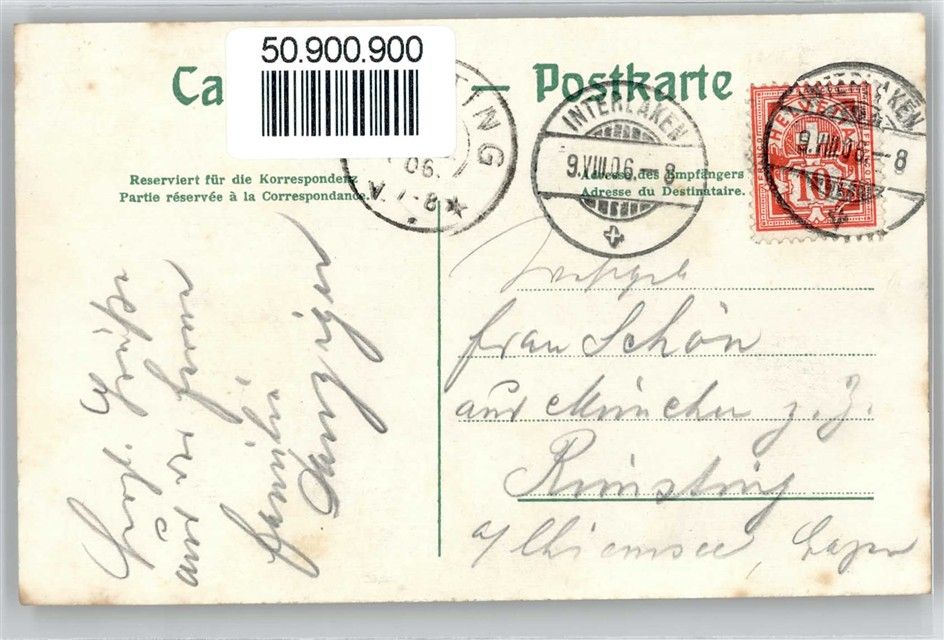 50.900.900
Ca — Postkarte
TING
06.
V. 7-8
INTERLAKEN
9.VIII.06.-8
INTERLAKEN
9.VIII.06.-8
HELVETIA
10
Reserviert für die Korrespondenz
Partie réservée à la Correspondance.
Adresse des Empfängers
Adresse du Destinataire.
Frau Schön
aus München z. Z.
Rimsting
a/Chiemsee,
Grüße
Familie
Danziger